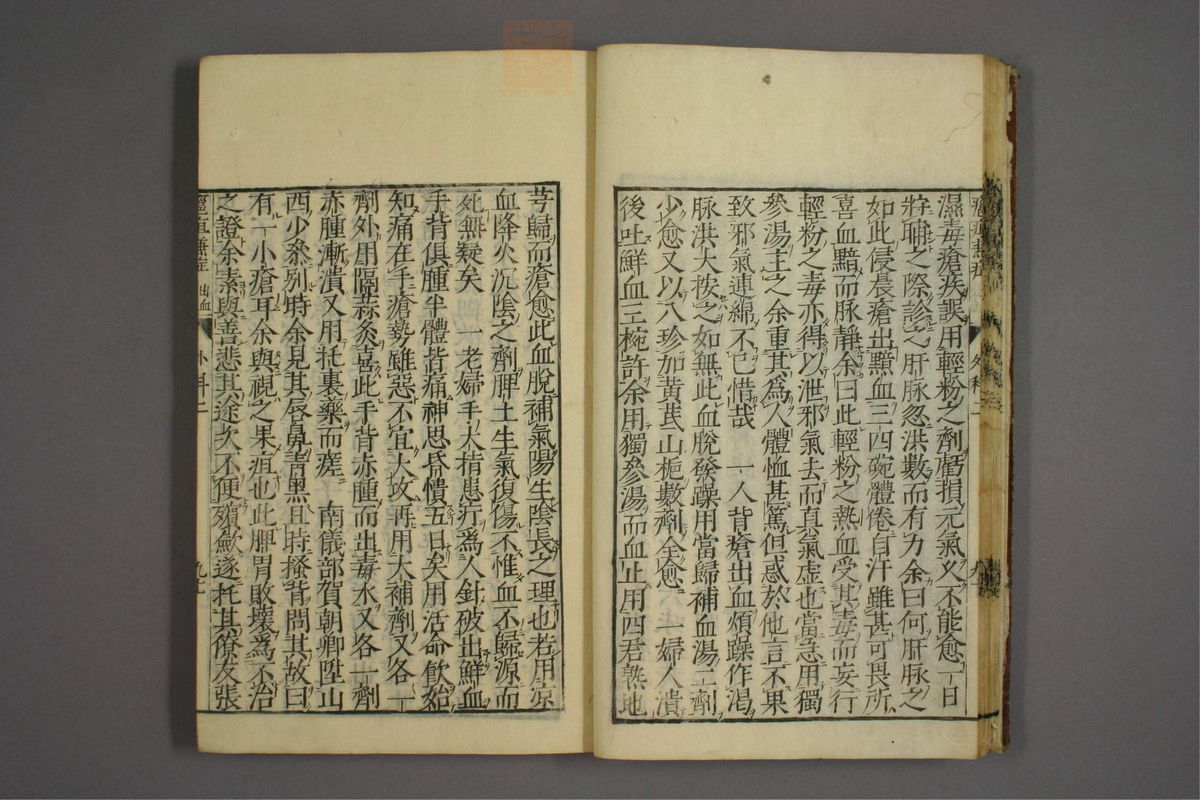 濕毒瘡疾誤用輕粉之劑虧損元氣久不能愈一日
將晡之際診之肝脉忽洪數而有力余曰何肝脉之
如此侵晨瘡出黯血三四碗體倦自汗雖甚可畏所
喜血黯而脉靜余曰此輕粉之熱血受其毒而妄行
輕粉之毒亦得以泄邪氣去而真氣虛也當急用獨
參湯主之余重其為人體恤甚篤但惑於他言不果
致邪氣連綿不已惜哉　一人背瘡出血煩躁作渴
脉洪大按之如無此血脫發躁用當歸補血湯二劑
少愈又以八珍加黃芪山梔數劑全愈　一婦人潰
後吐鮮血三椀許余用獨參湯而血止用四君熟地
芎歸而瘡愈此血脫補氣陽生陰長之理也若用凉
血降火沉陰之劑脾土生氣復傷不惟血不歸源而
死無疑矣　一老婦手大指患疔為人針破出鮮血
手背俱腫半體皆痛神思昏憒五日矣用活命飲始
知痛在手瘡勢雖惡不宜大攻再用大補劑又各一
劑外用隔蒜灸喜此手背赤腫而出毒水又各一劑
赤腫漸潰又用托裏藥而瘥　南儀部賀朝卿陞山
西少參別時余見其唇鼻青黑且時搔背問其故曰
有一小瘡耳余與視之果疽也此脾胃敗壞為不治
之證余素與善悲其途次不便殯歛遂托其僚友張
出血
外科二